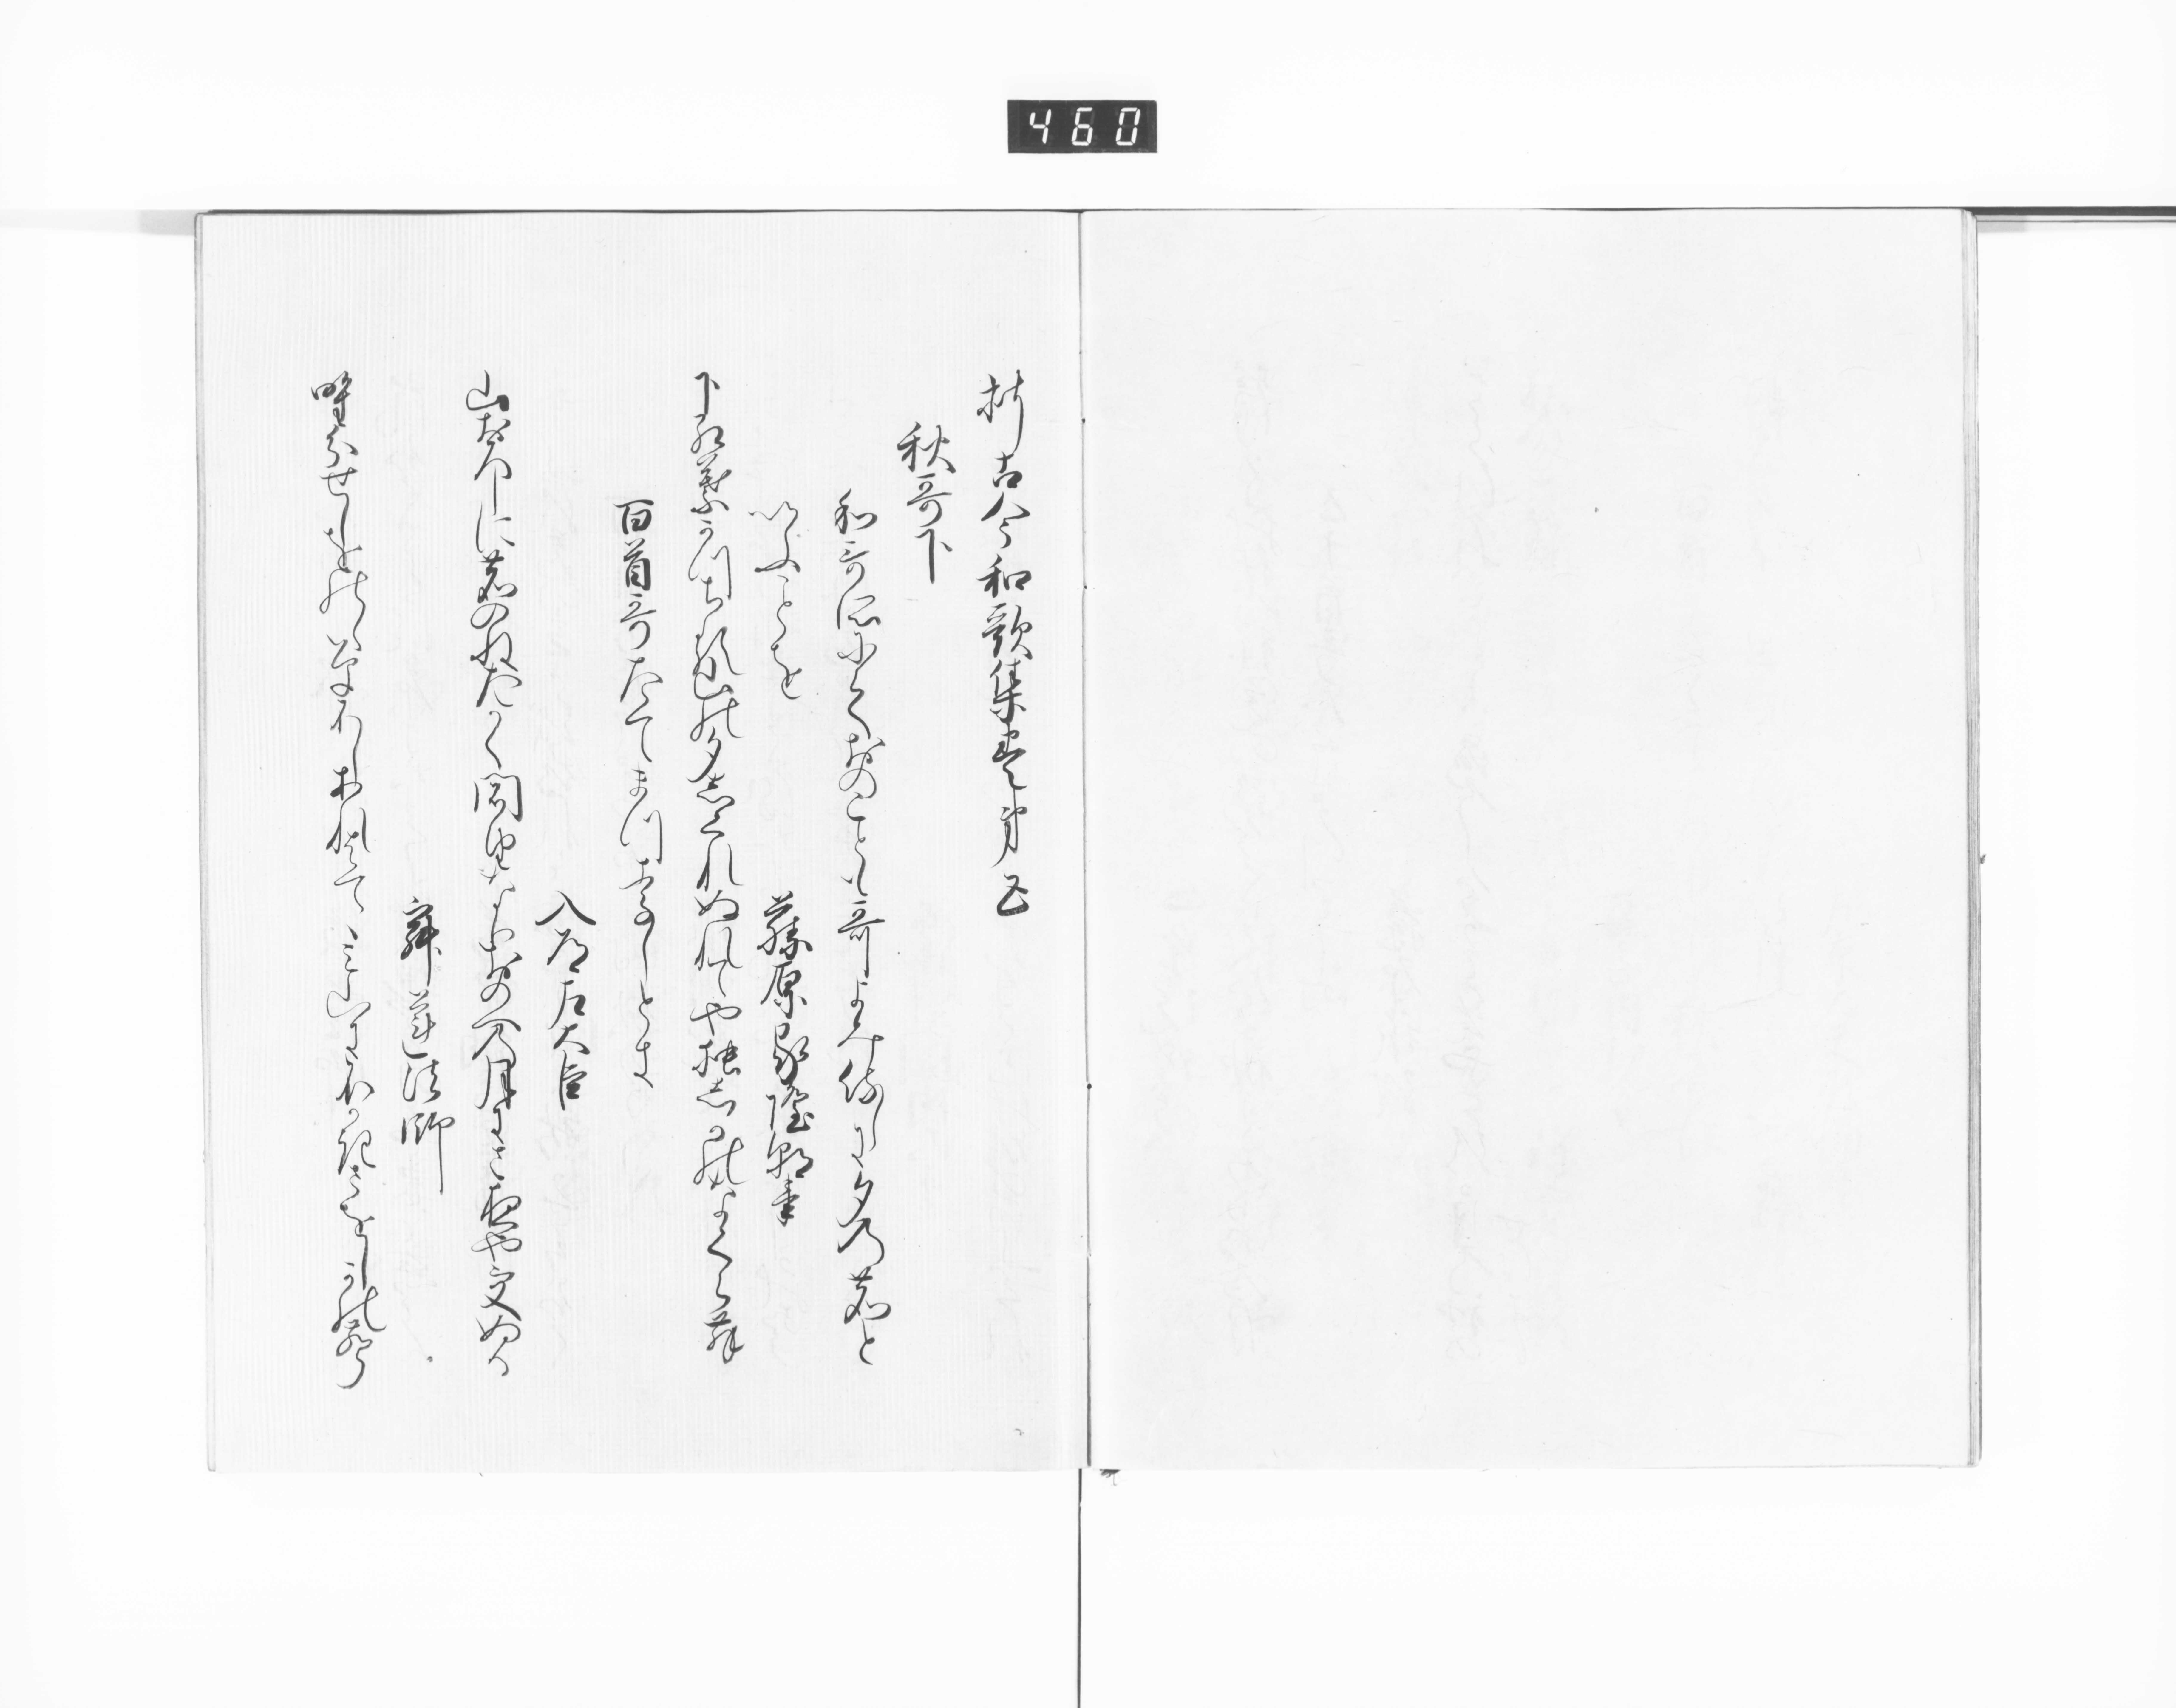 460
新古今和歌集巻第五
秋哥下
和哥所にてをのことも哥よみ侍しに夕乃鹿と
いふことを
藤原家隆朝臣
下紅葉かつちる山の夕しくれぬれてや独しかのなくらん
百首哥たてまつりしとき
入道左大臣
山おろしに鹿のねたかく聞ゆなりをのへの月にさ夜や更ぬる
寂蓮法師
野分せしをのゝくさふしあれはてゝみ山にふかきさをしかのこゑ